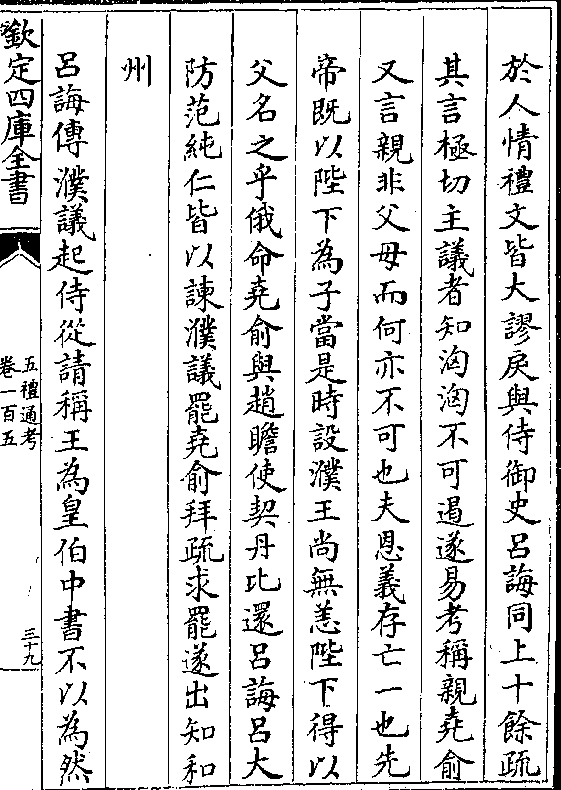 於人情禮文皆大謬戾與侍御史呂誨同上十餘疏
其言極切主議者知洶洶不可遏遂易考稱親堯俞
又言親非父母而何亦不可也夫恩義存亡一也先
帝既以陛下為子當是時設濮王尚無恙陛下得以
父名之乎俄命堯俞與趙瞻使契丹比還呂誨呂大
防范純仁皆以諫濮議罷堯俞拜疏求罷遂出知和
州
呂誨傳濮議起侍從請稱王為皇伯中書不以為然
欽定四庫全書
五禮通考
卷一百五
三十九